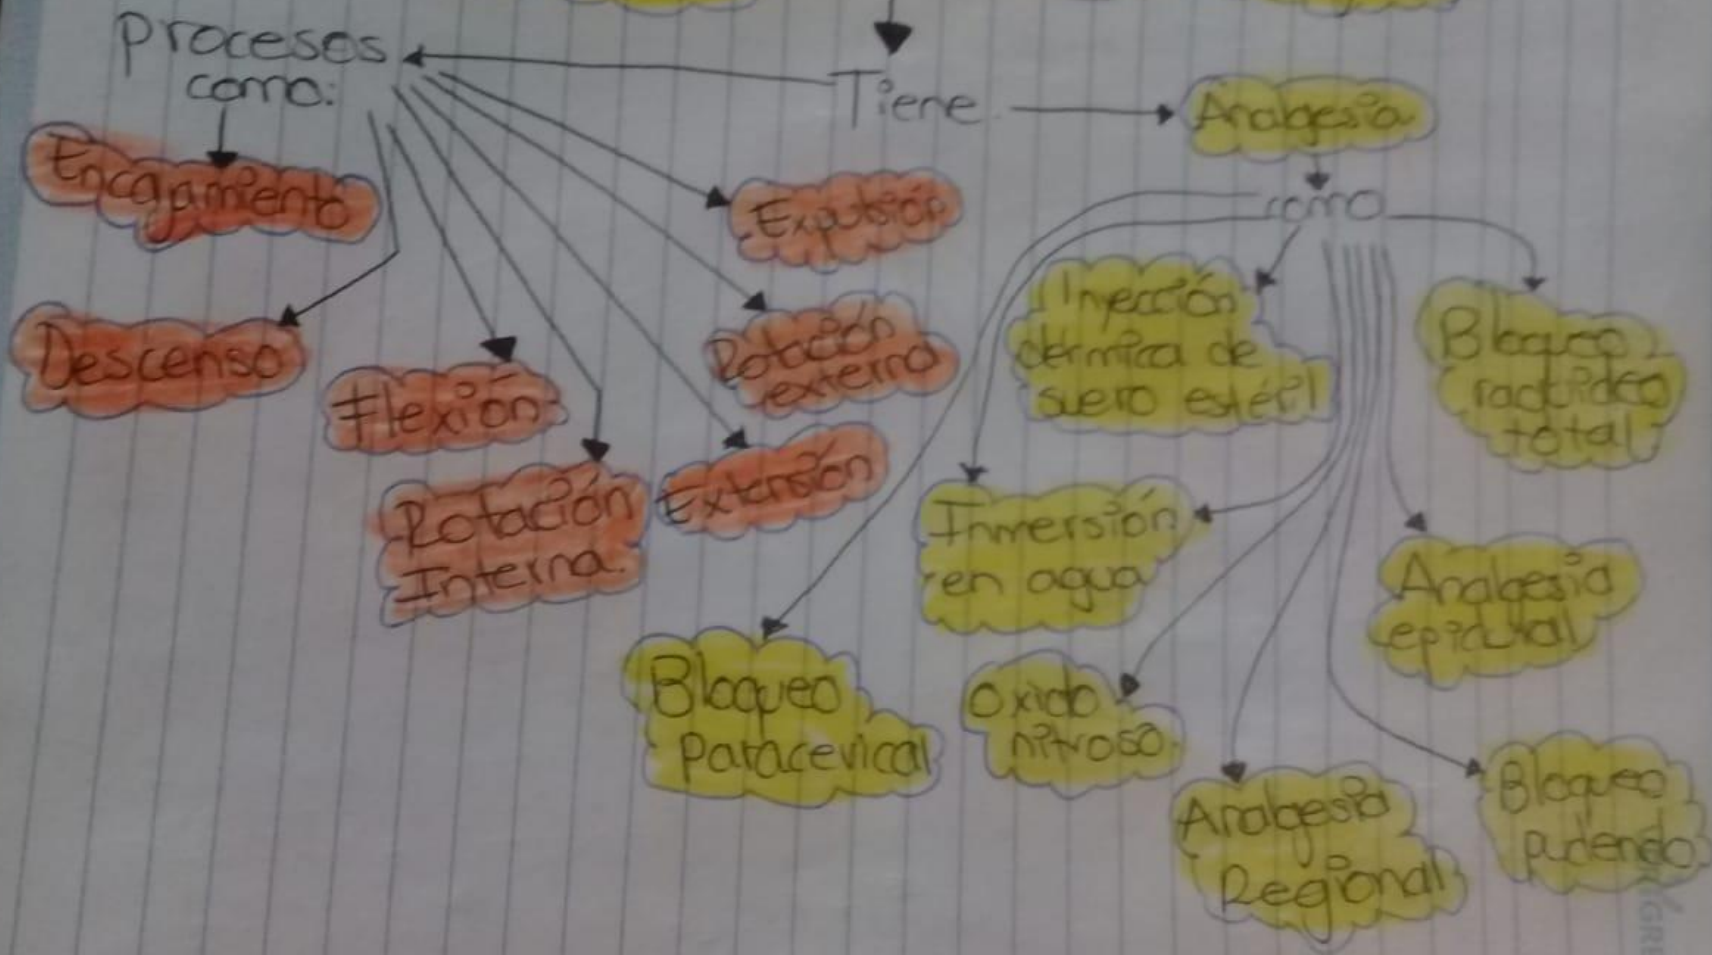 Procesos
como:
Tiene
Analgesia
como
Encajamiento
Descenso
Flexión
Rotación
Interna.
Extensión
Rotación
externa
Expulsión
Inyección
dérmica de
suero estéril
Bloqueo
total
Inmersión
en agua
Analgesia
epidural
Bloqueo
Paracevical
Oxido
nitroso
Analgesia
Regional
Bloqueo
pudendo